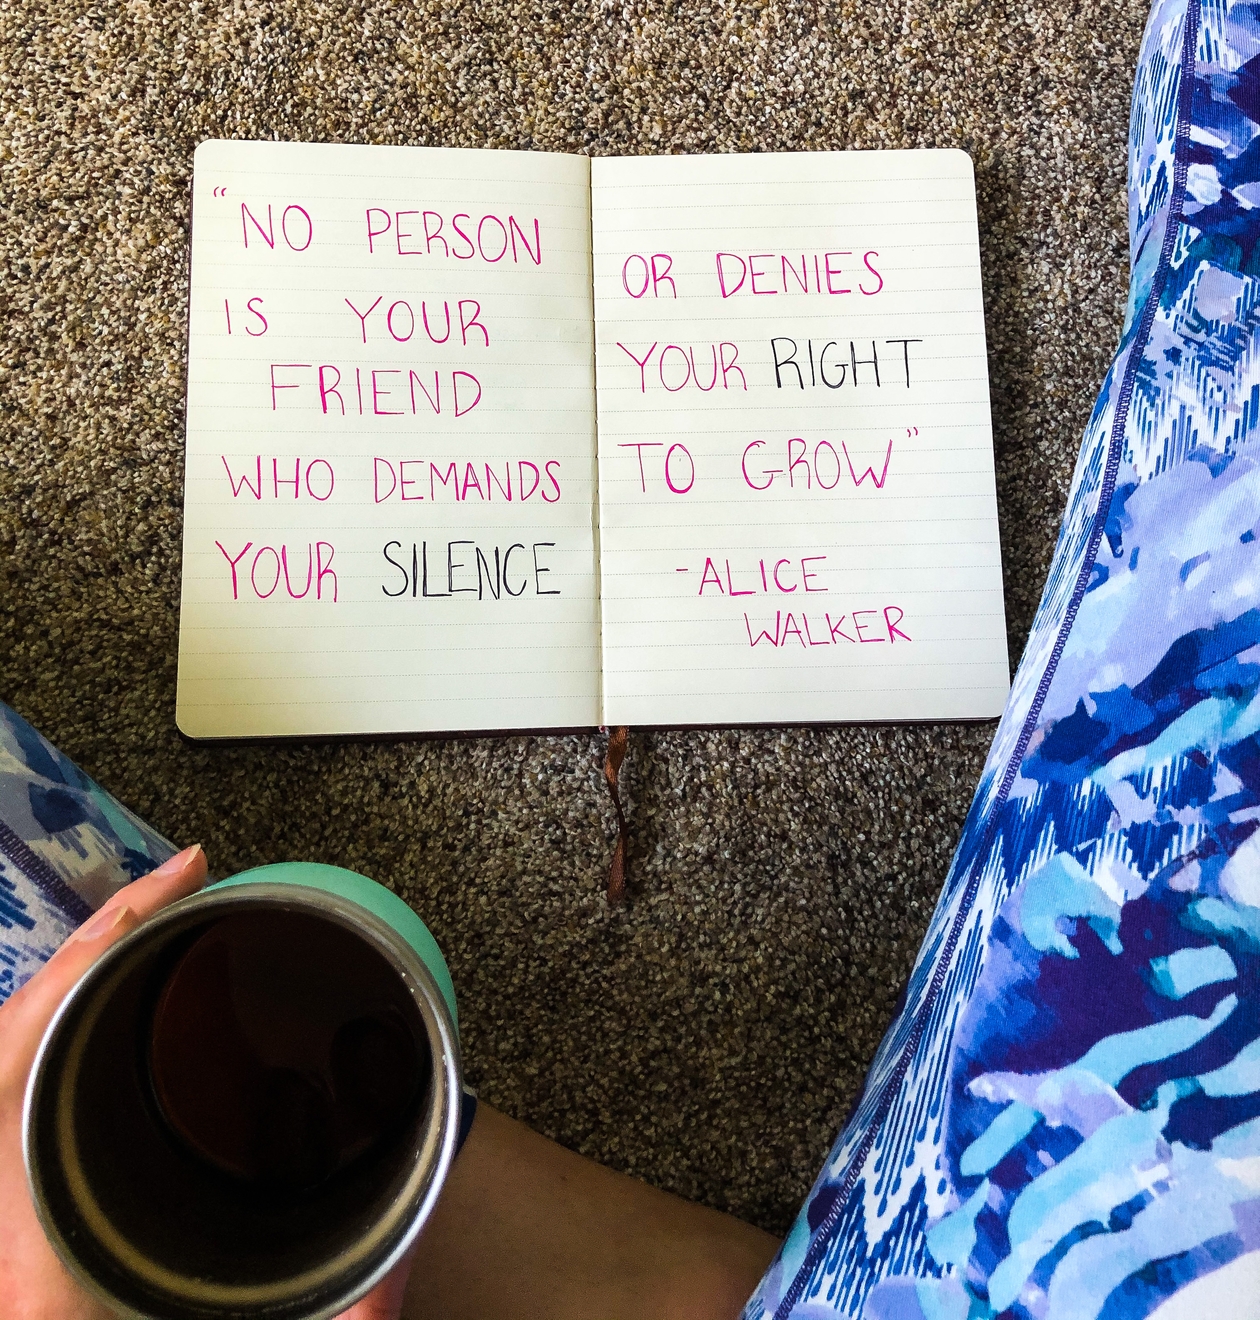 “NO PERSON
IS YOUR
FRIEND
WHO DEMANDS
YOUR SILENCE
OR DENIES
YOUR RIGHT
TO GROW”
-ALICE
WALKER